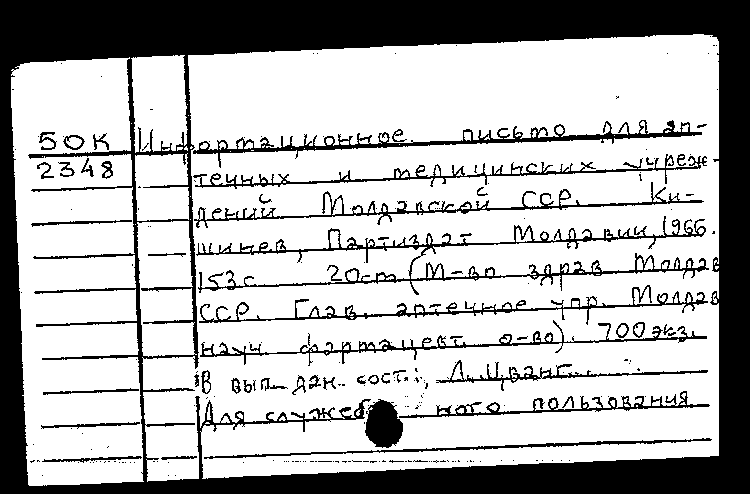 50К Информационное письмо для ап-
2348 течных и медицинских учреж-
дений Молдавской ССР. Ки-
шинев, Партиздат Молдавии, 1966.
153с 20cm (М-во здрав Молдав
ССР. Глав. аптечное упр. Молдав
науч. фармацевт. о-во). 700 экз.
В вып. дан. сост.: Л. Цванг.
Для служебного пользования